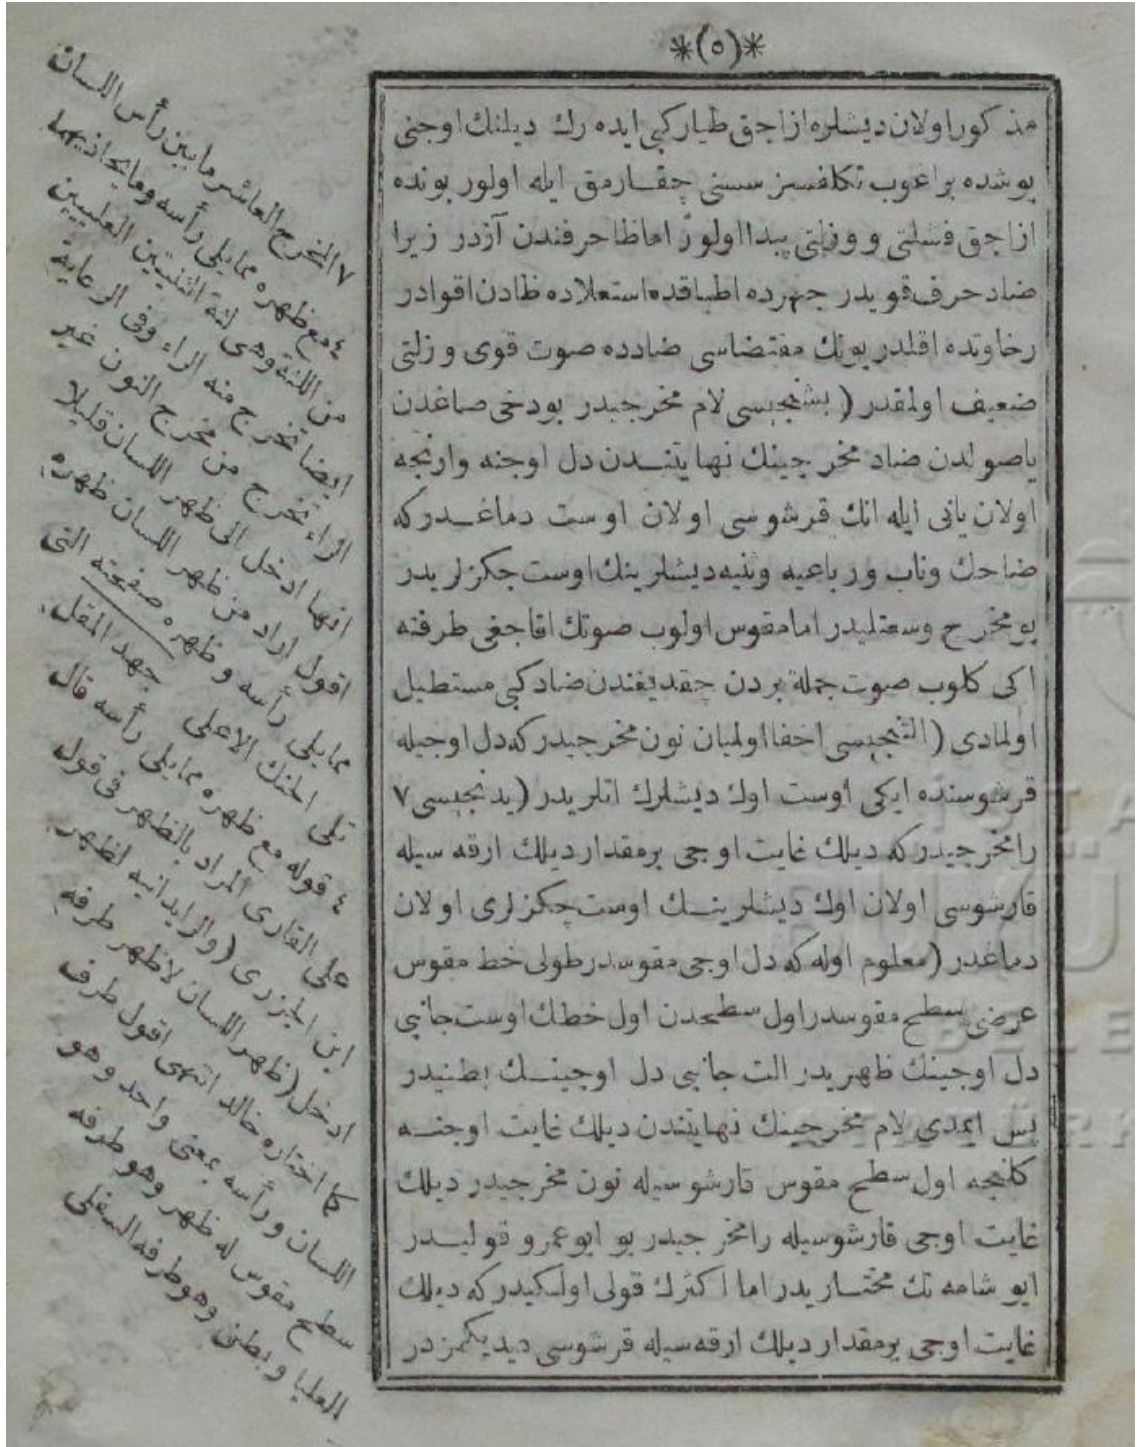 *(٥)*
مذكور اولان ديشلره ازاجق طياركبى ايده رك ديلنك اوجنى
بوشده براغوب تكلفسز سسنى چقارمق ايله اولور بونده
ازاجق فسلتى و وزلتى پيدا اولور اماظا حرفندن آزدر زيرا
ضاد حرف قويدر جهرده اطباقده استعلاده ظادن اقوادر
رخاوتده اقلدر بونك مقتضاسى ضادده صوت قوى و زلتى
ضعيف اولمقدر (بشنجيسى لام مخرجيدر بودخى صاغدن
ياصولدن ضاد مخرجينك نهايتندن دل اوجنه وارنجه
اولان يانى ايله انك قرشوسى اولان اوست دماغدركه
ضاحك وناب ورباعيه وثنيه ديشلرينك اوست جكزلريدر
بو مخرج وسعتليدر امامقوس اولوب صوتك اقاجغى طرفنه
اكى كلوب صوت جملة بردن چقديغندن ضادكبى مستطيل
اولمادى (التنجيسى اخفا اولميان نون مخرجيدركه دل اوجيله
قرشوسنده ايكى اوست اوك ديشلرك اتلريدر (يدنجيسى ٧
رامخرجيدركه ديلك غايت اوجى برمقدار ديلك ارقه سيله
قارشوسى اولان اوك ديشلرينك اوست جكزلرى اولان
دماغدر (معلوم اوله كه دل اوجى مقوسدر طولى خط مقوس
عرضى سطح مقوسدر اول سطحدن اول خطك اوست جانبى
دل اوجينك ظهريدر الت جانبى دل اوجينك بطنيدر
پس ايمدى لام مخرجينك نهايتندن ديلك غايت اوجنه
كلنجه اول سطح مقوس قارشوسيله نون مخرجيدر ديلك
غايت اوجى قارشوسيله رامخرجيدر بو ابوعمرو قوليدر
ابو شامه نك مختاريدر اما اكثرك قولى اولكيدركه ديلك
غايت اوجى برمقدار ديلك ارقه سيله قرشوسى ديديكمزدر
٧ المخرج العاشر مابين رأس اللسان
٤ مع ظهره ممايلى رأسه ومايحاذيهما
من اللثة وهى لثة الثنيتين العلييين
ايضا تخرج منه الراء وفى الرعاية
الراء تخرج من مخرج النون غير
انها ادخل الى ظهر اللسان قليلا
اقول اراد من ظهر اللسان ظهره
ممايلى رأسه و ظهره صفيحته التى
تلى الحنك الاعلى جهد المقل
٤ قوله مع ظهره ممايلى رأسه قال
على القارى المراد بالظهر فى قول
ابن الجزرى (والرايدانيه لظهر
ادخل (ظهر اللسان لاظهر طرفه
كما اختاره خالد انتهى اقول طرف
اللسان ورأسه بمعنى واحد وهو
سطح مقوس له ظهر وهو طرفه
العليا و بطن وهوطرفه السفلى